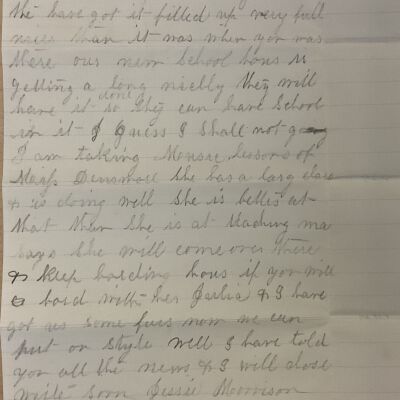 the have got it filled up very full
nicer than it was when you was
there our new School hous is
getting a long nicely they will
have it so done they can have School
in it I Guess I Shall not go
I am taking Mussic Lessons of
Miss Dinsmore She has a larg class
& is doing well She is better at
that than She is at teaching ma
says She will come over there
& Keep bording hous if you will
bord with her Julia & I have
got us some furs now we can
put on Style well I have told
you all the news & I will close
write soon Jessie Morrison